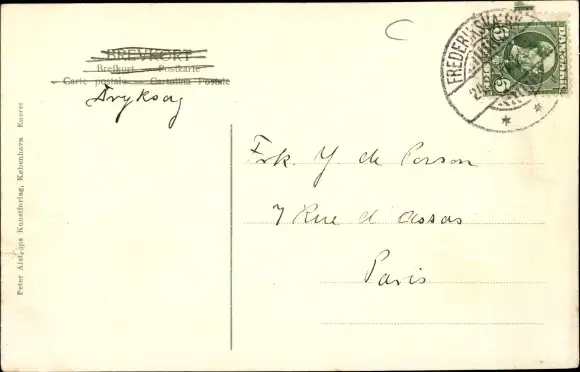 BREVKORT
Brefkort Postkarte
Carte postale Cartolina Postale
Tryksag
FREDERIKSVÆRK
DANMARK
5
Frk. Y. de Porson
7 Rue d'assas
Paris
Peter Alstrups Kunstforlag, København Eneret